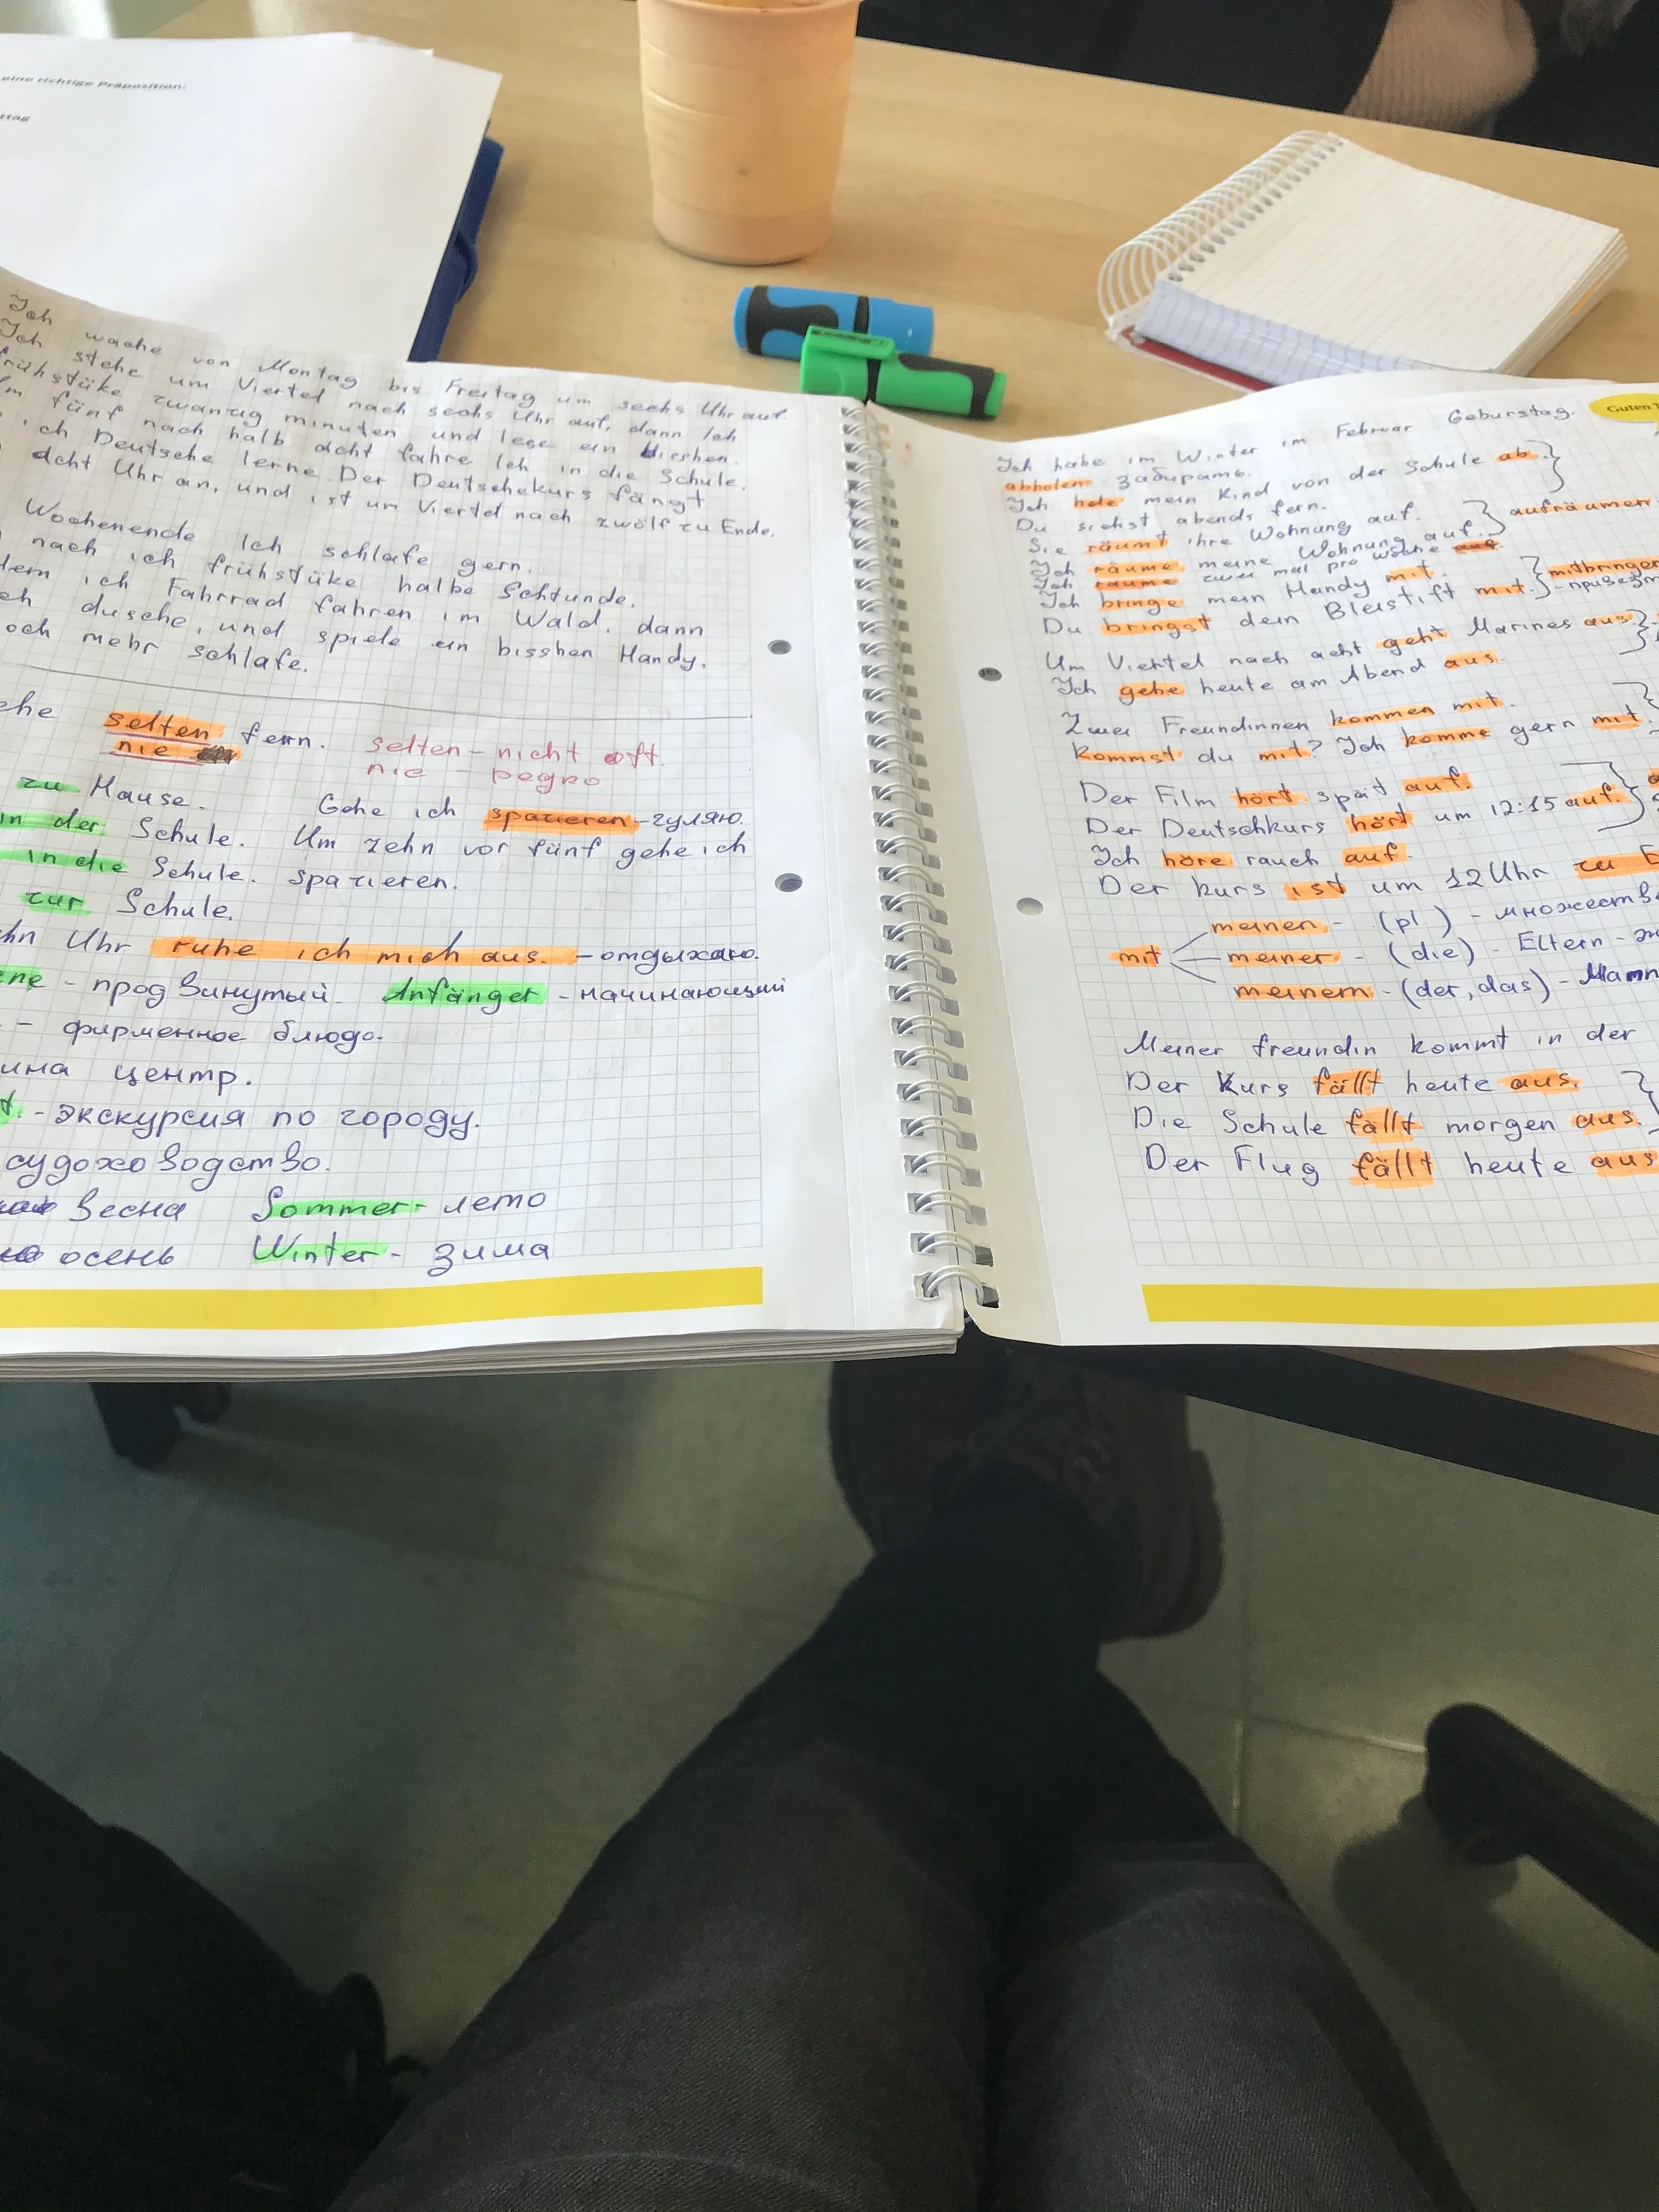 eine richtige Präposition:
Ich wache von Montag bis Freitag um sechs Uhr auf.
Ich stehe um Viertel nach sechs Uhr auf, dann Ich
frühstüke zwanzig minuten und lese ein bisshen.
fünf nach halb acht fahre Ich in die Schule.
ich Deutsche lerne. Der Deutschekurs fängt
acht Uhr an, und ist um Viertel nach zwölf zu Ende.
Wochenende Ich schlafe gern.
nach ich frühstüke halbe Schtunde.
ich Fahrrad fahren im Wald. dann
dusche, und spiele ein bisshen Handy.
mehr schlafe.
selten fern. selten - nicht oft.
nie nie - редко
zu Hause. Gehe ich spazieren - гуляю.
in der Schule. Um zehn vor fünf gehe ich
in die Schule. spazieren.
zur Schule.
Uhr ruhe ich mich aus. - отдыхаю.
- продвинутый. Anfänger - начинающий
- фирменное блюдо.
центр.
- экскурсия по городу.
судоходство.
весна Sommer - лето
осень Winter - зима
Guten T
Ich habe im Winter im Februar Geburstag.
abholen - забирать.
Ich hole mein Kind von der Schule ab.
Du siehst abends fern.
Sie räumt ihre Wohnung auf. aufräumen
Ich räume meine Wohnung auf.
Ich räume zwei mal pro woche auf.
Ich bringe mein Handy mit. mitbringen
Du bringst dein Bleistift mit.
Um Viertel nach acht geht Marines aus.
Ich gehe heute am Abend aus.
Zwei Freundinnen kommen mit.
kommst du mit? Ich komme gern mit.
Der Film hört spät auf.
Der Deutschkurs hört um 12:15 auf.
Ich höre rauch auf.
Der kurs ist um 12 Uhr zu E
meinen - (pl) -
mit meiner - (die) - Eltern -
meinem - (der, das) - Mann
Meiner freundin kommt in der
Der Kurs fällt heute aus.
Die Schule fällt morgen aus.
Der Flug fällt heute aus